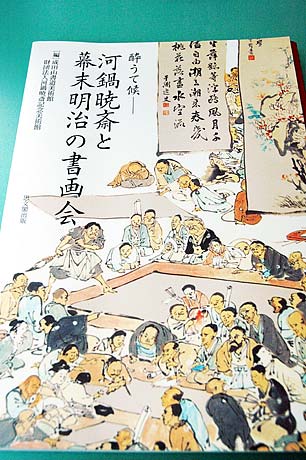 酔うて候――
河鍋暁斎と
幕末明治の書画会
編 成田山書道美術館
財団法人河鍋暁斎記念美術館
思文閣出版